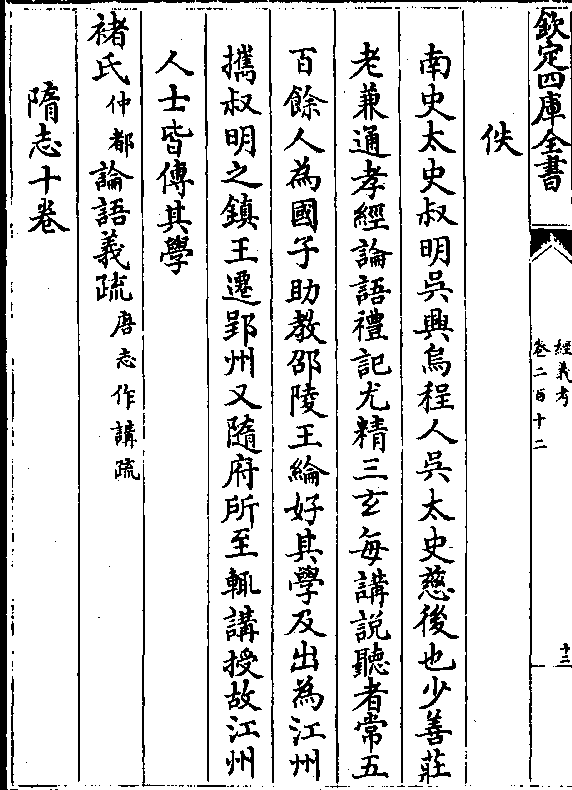 欽定四庫全書
經義考
卷二百十二
十三
佚
南史太史叔明吳興烏程人吳太史慈後也少善莊
老兼通孝經論語禮記尤精三玄每講說聽者常五
百餘人為國子助教邵陵王綸好其學及出為江州
攜叔明之鎮王遷郢州又隨府所至輒講授故江州
人士皆傳其學
褚氏仲都論語義疏唐志作講疏
隋志十卷